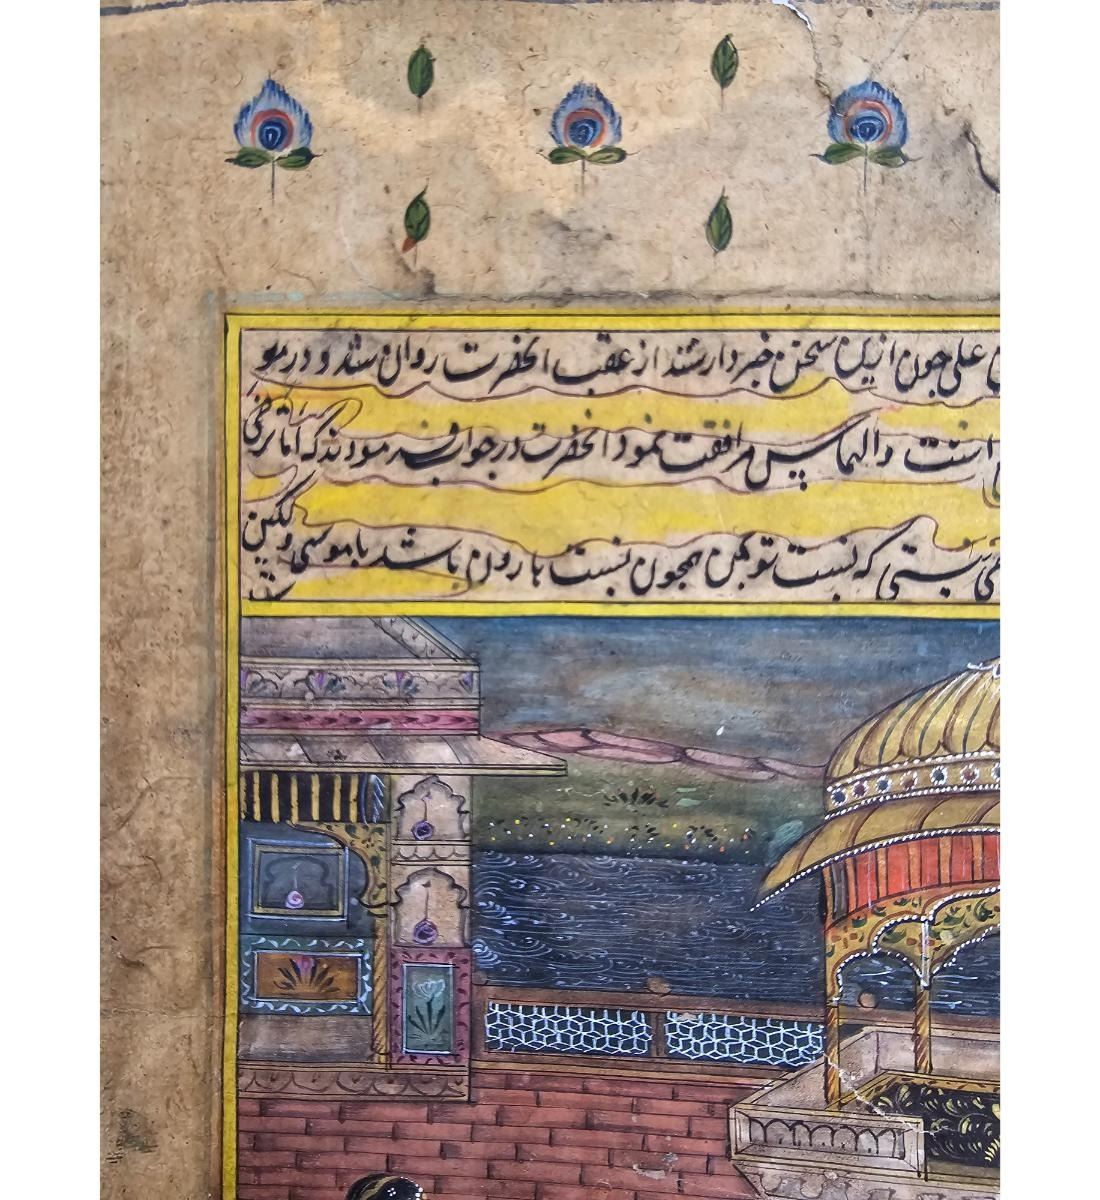 علی چون ازین سخن خبردار شدند از عقب آنحضرت روان شد و در مو
است و التماس مرافقت نمود آنحضرت در جواب فرمودند که اما ترضی
که نسبت تو بمن همچون نسبت هارون باشد با موسی ولکن